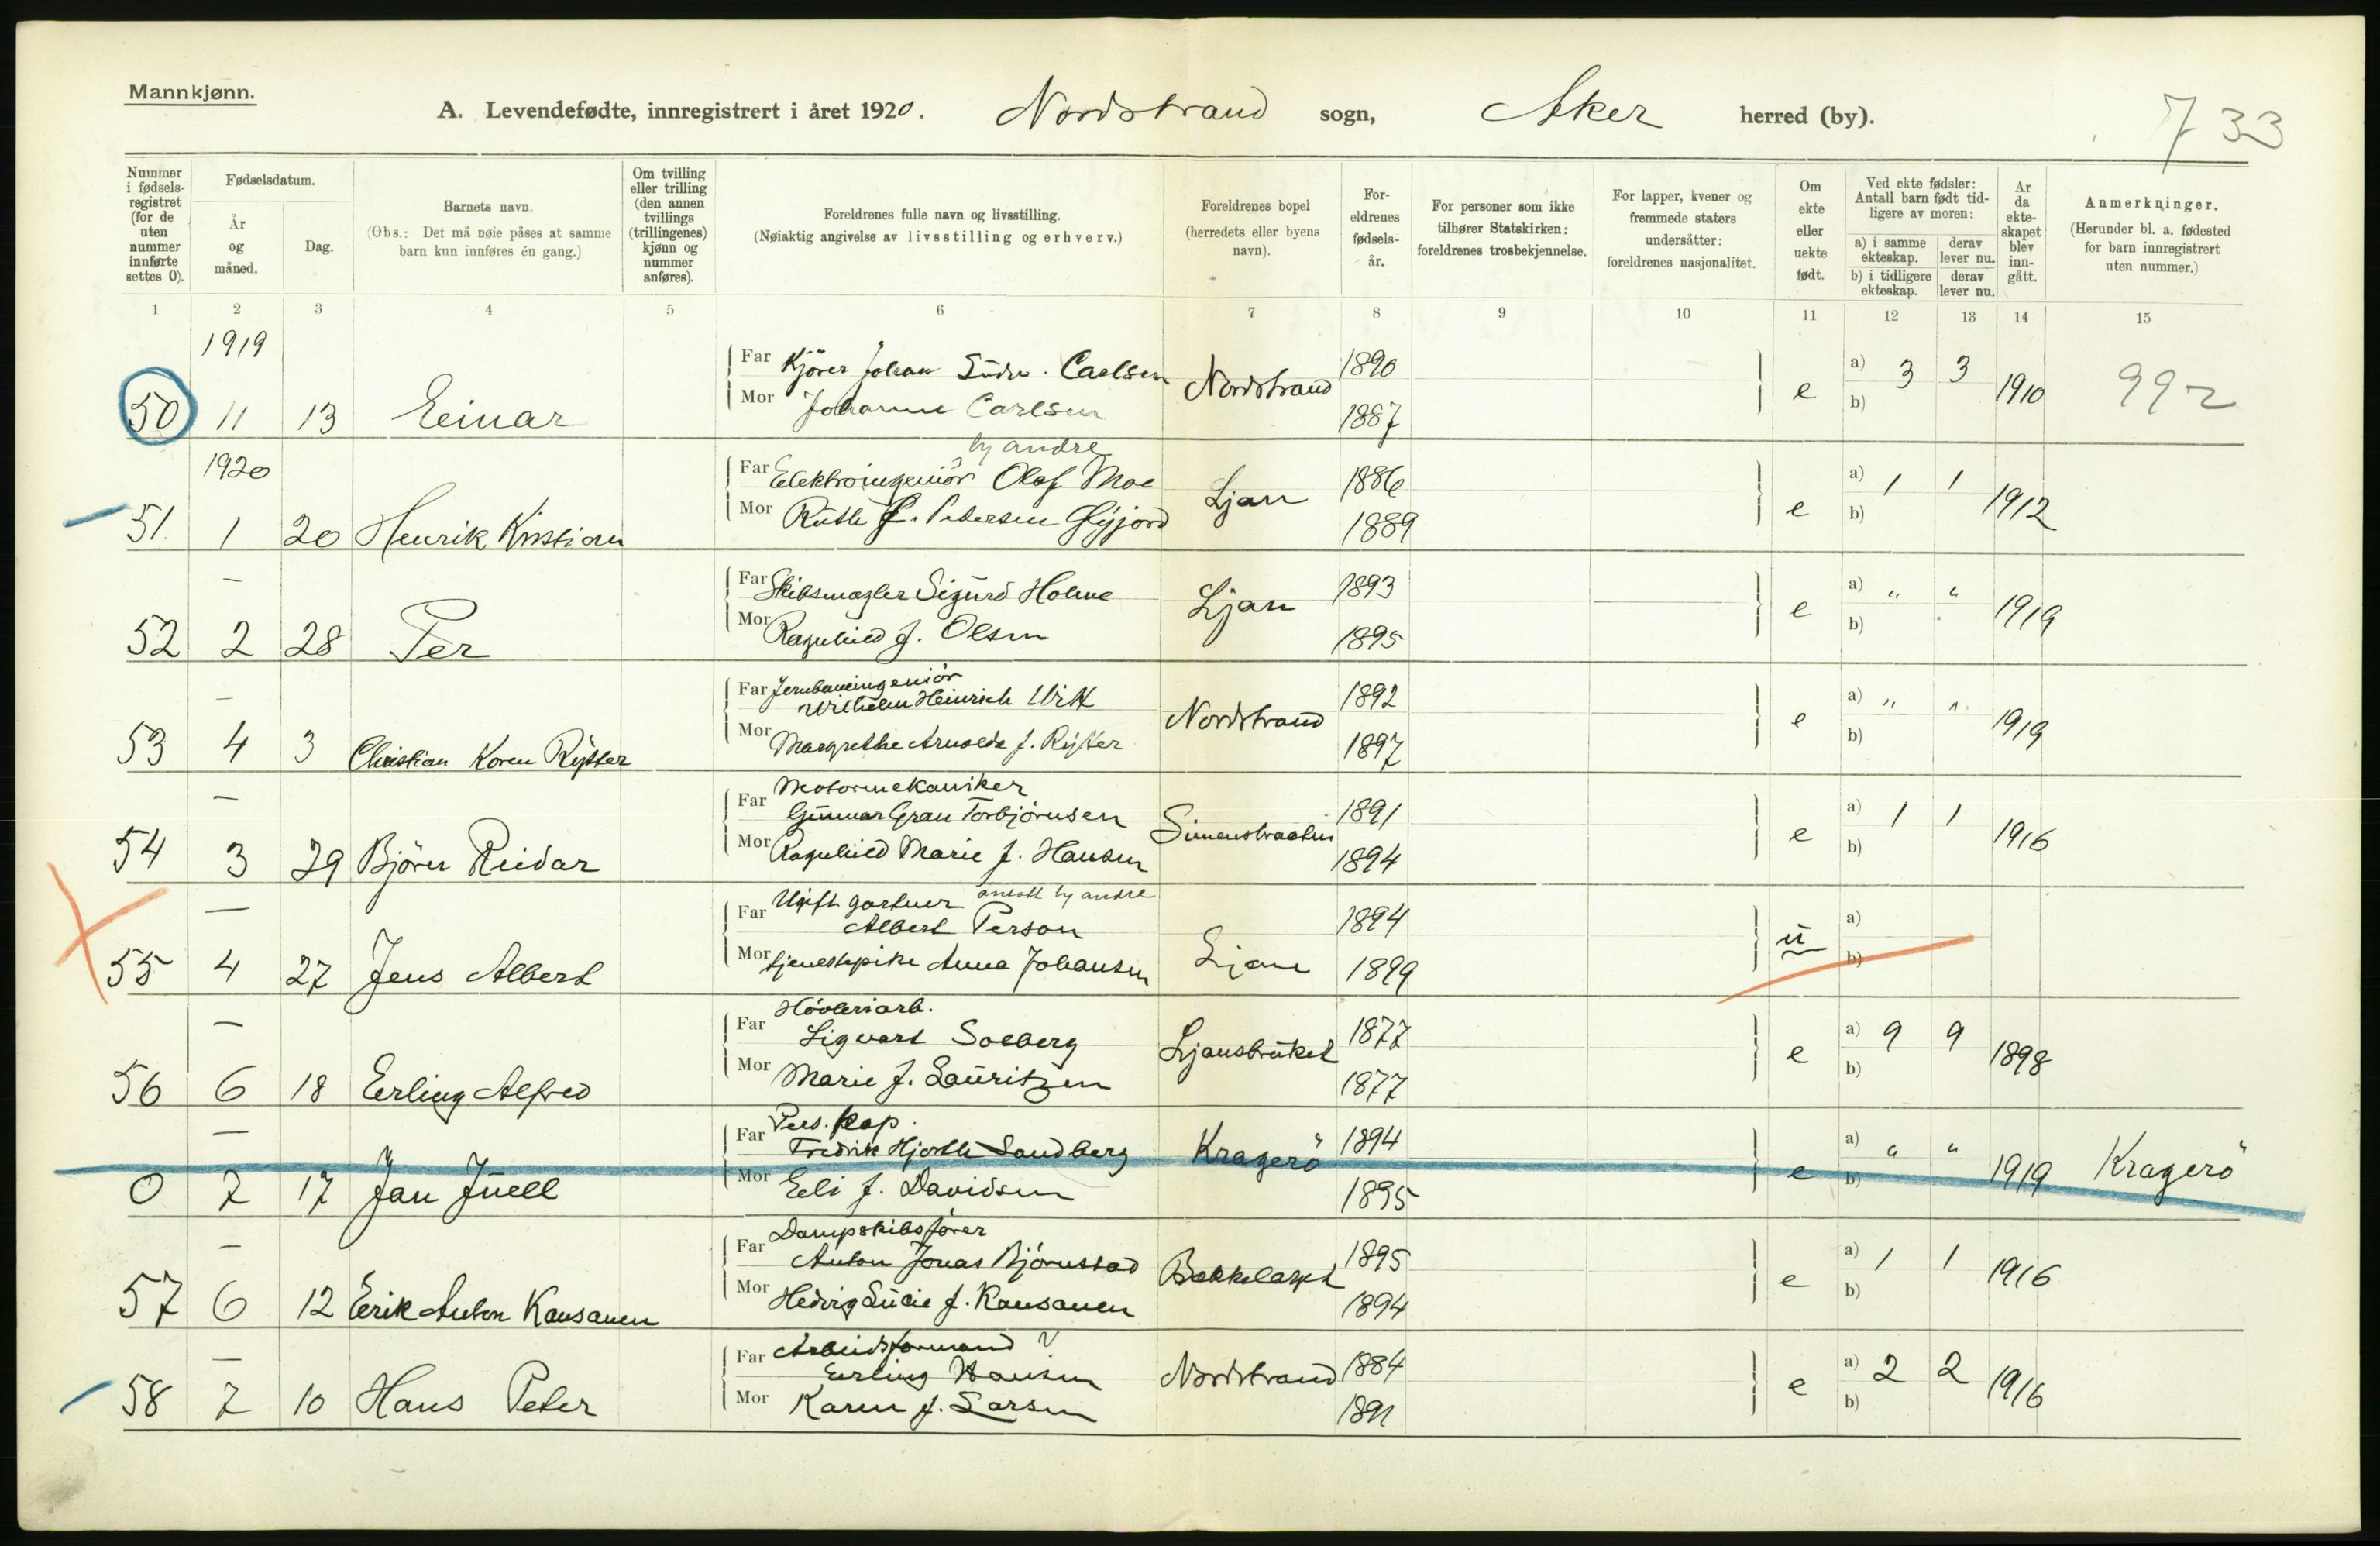 Mannkjønn.
A. Levendefødte, innregistrert i året 1920. Nordstrand sogn, Aker herred (by). 733
Nummer i fødsels-registret (for de uten nummer innførte settes 0).
Fødselsdatum.
År og måned.
Dag.
Barnets navn.
(Obs.: Det må nøie påses at samme barn kun innføres én gang.)
Om tvilling eller trilling (den annen tvillings (trillingenes) kjønn og nummer anføres).
Foreldrenes fulle navn og livsstilling.
(Nøiaktig angivelse av livsstilling og erhverv.)
Foreldrenes bopel (herredets eller byens navn).
For-eldrenes fødsels-år.
For personer som ikke tilhører Statskirken: foreldrenes trosbekjennelse.
For lapper, kvener og fremmede staters undersåtter: foreldrenes nasjonalitet.
Om ekte eller uekte født.
Ved ekte fødsler: Antall barn født tid-ligere av moren:
a) i samme ekteskap. derav lever nu.
b) i tidligere ekteskap. derav lever nu.
År da ekte-skapet blev inn-gått.
Anmerkninger.
(Herunder bl. a. fødested for barn innregistrert uten nummer.)
1 2 3 4 5 6 7 8 9 10 11 12 13 14 15
1919
Far Kjörer Johan Carlsen 1890
50 11 13 Einar Mor Johanne Carlsen Nordstrand 1887 e a) 3 3 b) 1910 992
1920
hj andre
Far Elektroingeniör Olaf Moe 1886
51. 1 20 Henrik Kristian Mor Ruth f. Petersen Ljan 1889 e a) 1 1 b) 1912
—
Far Skibsmægler Sigurd Holme 1893
52 2 28 Per Mor Ragnhild f. Olsen Ljan 1895 e a) " " b) 1919
—
Far Jernbaneingeniör
Wilhelm Heinrich Witt 1892
53 4 3 Christian Koren Rytter Mor Margrethe Arnolda f. Rytter Nordstrand 1897 e a) " " b) 1919
—
Far Motormekaniker
Gunnar Gran Torbjörnsen 1891
54 3 29 Björn Reidar Mor Ragnhild Marie f. Hansen Simenstraaten 1894 e a) 1 1 b) 1916
—
Far Ugift gartner ansatt hj andre
Albert Person 1894
55 4 27 Jens Albert Mor tjenestepike Anna Johansen Ljan 1899 u a) b)
—
Far Hövleriarb.
Sigvart Solberg 1877
56 6 18 Erling Alfred Mor Marie f. Lauritzen Ljansbruket 1877 e a) 9 9 b) 1898
—
Far Pers. kap.
Fredrik Hjorth Sandberg 1894
0 7 17 Jan Juell Mor Eli f. Davidsen Kragerö 1895 e a) " " b) 1919 Kragerö
—
Far Dampskibsförer
Anton Jonas Björnstad 1895
57 6 12 Erik Anton Kansanen Mor Hedvig Lucie f. Kansanen Bækkelaget 1894 e a) 1 1 b) 1916
—
Far Arbeidsformand ?
Erling Hansen 1884
58 7 10 Hans Peter Mor Karen f. Larsen Nordstrand 1891 e a) 2 2 b) 1916